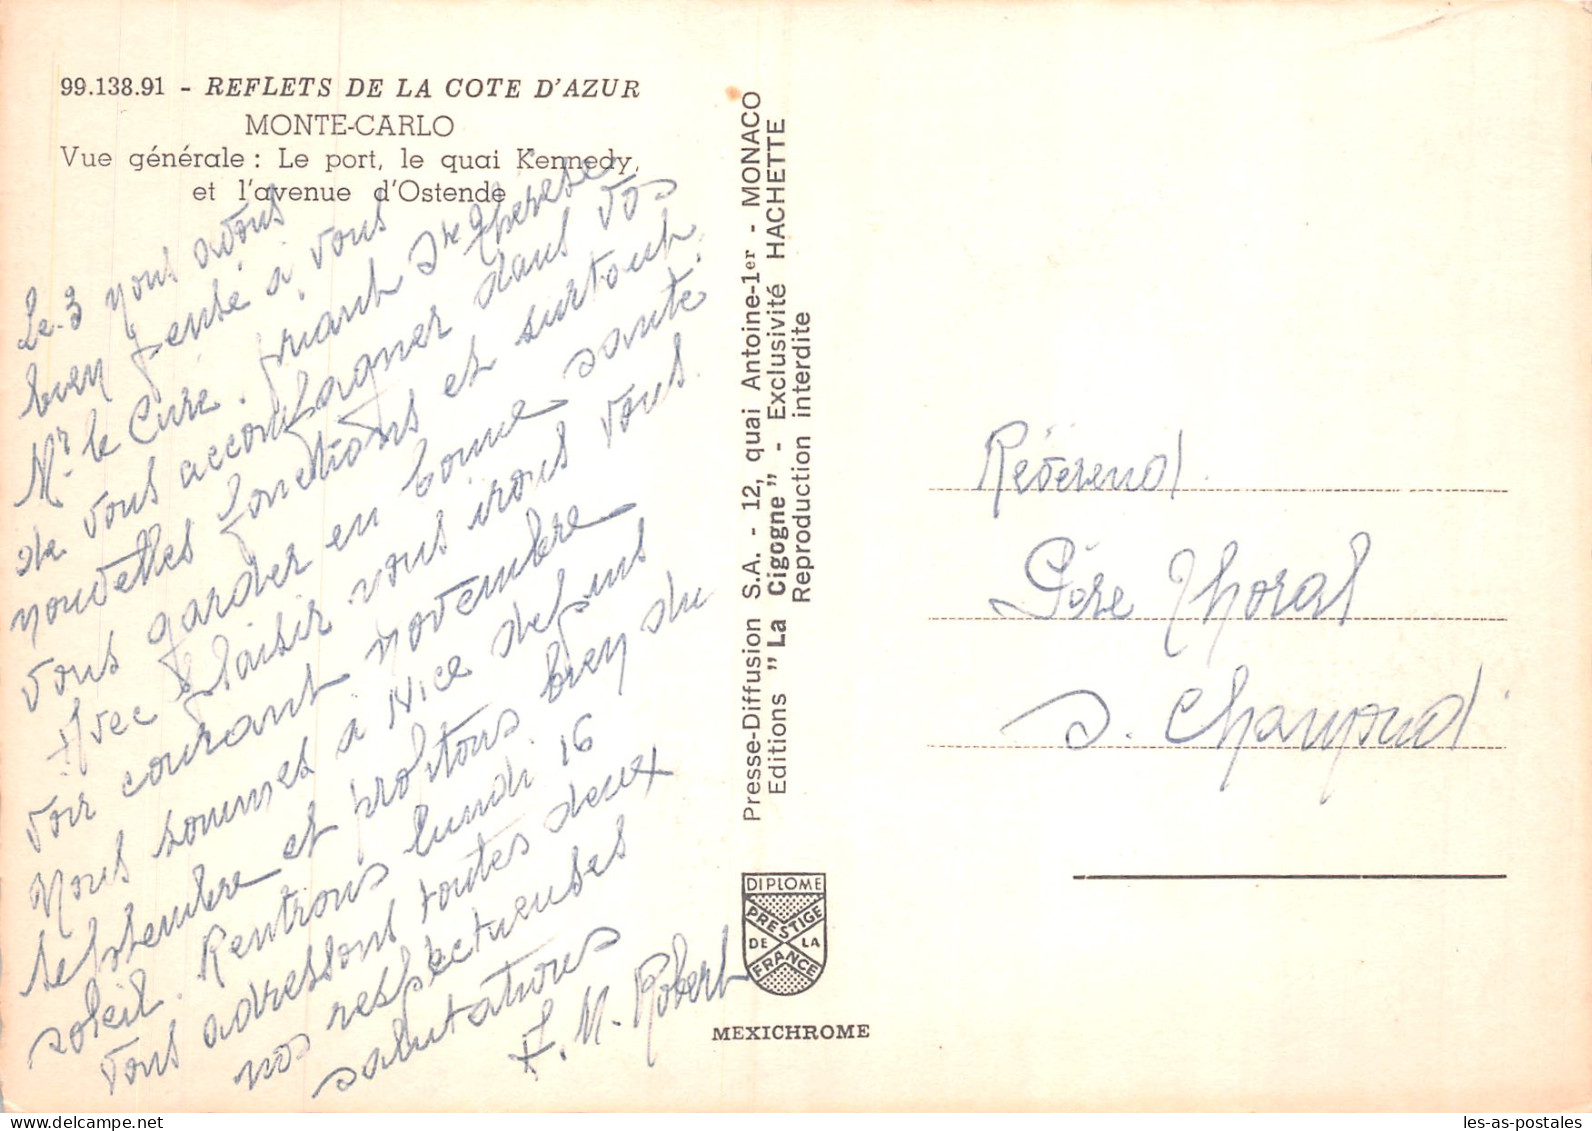 99.138.91 - REFLETS DE LA COTE D'AZUR
MONTE-CARLO
Vue générale : Le port, le quai Kennedy,
et l'avenue d'Ostende
Le 3 nous avons
bien pensé à vous
Mr le Curé. priant Ste Therese
de vous accompagner dans vos
nouvelles fonctions et surtout
vous garder en bonne santé
Avec plaisir nous irons vous
voir courant novembre
Nous sommes à Nice depuis
septembre et profitons bien du
soleil. Rentrons lundi 16
Vous adressons toutes deux
nos respectueuses
salutations
F. M. Robert
Presse-Diffusion S.A. - 12, quai Antoine-1er - MONACO
Editions "La Cigogne" - Exclusivité HACHETTE
Reproduction interdite
DIPLOME
PRESTIGE
DE LA
FRANCE
MEXICHROME
Révérend
Père Thoral
S. Chamond
les-as-postales